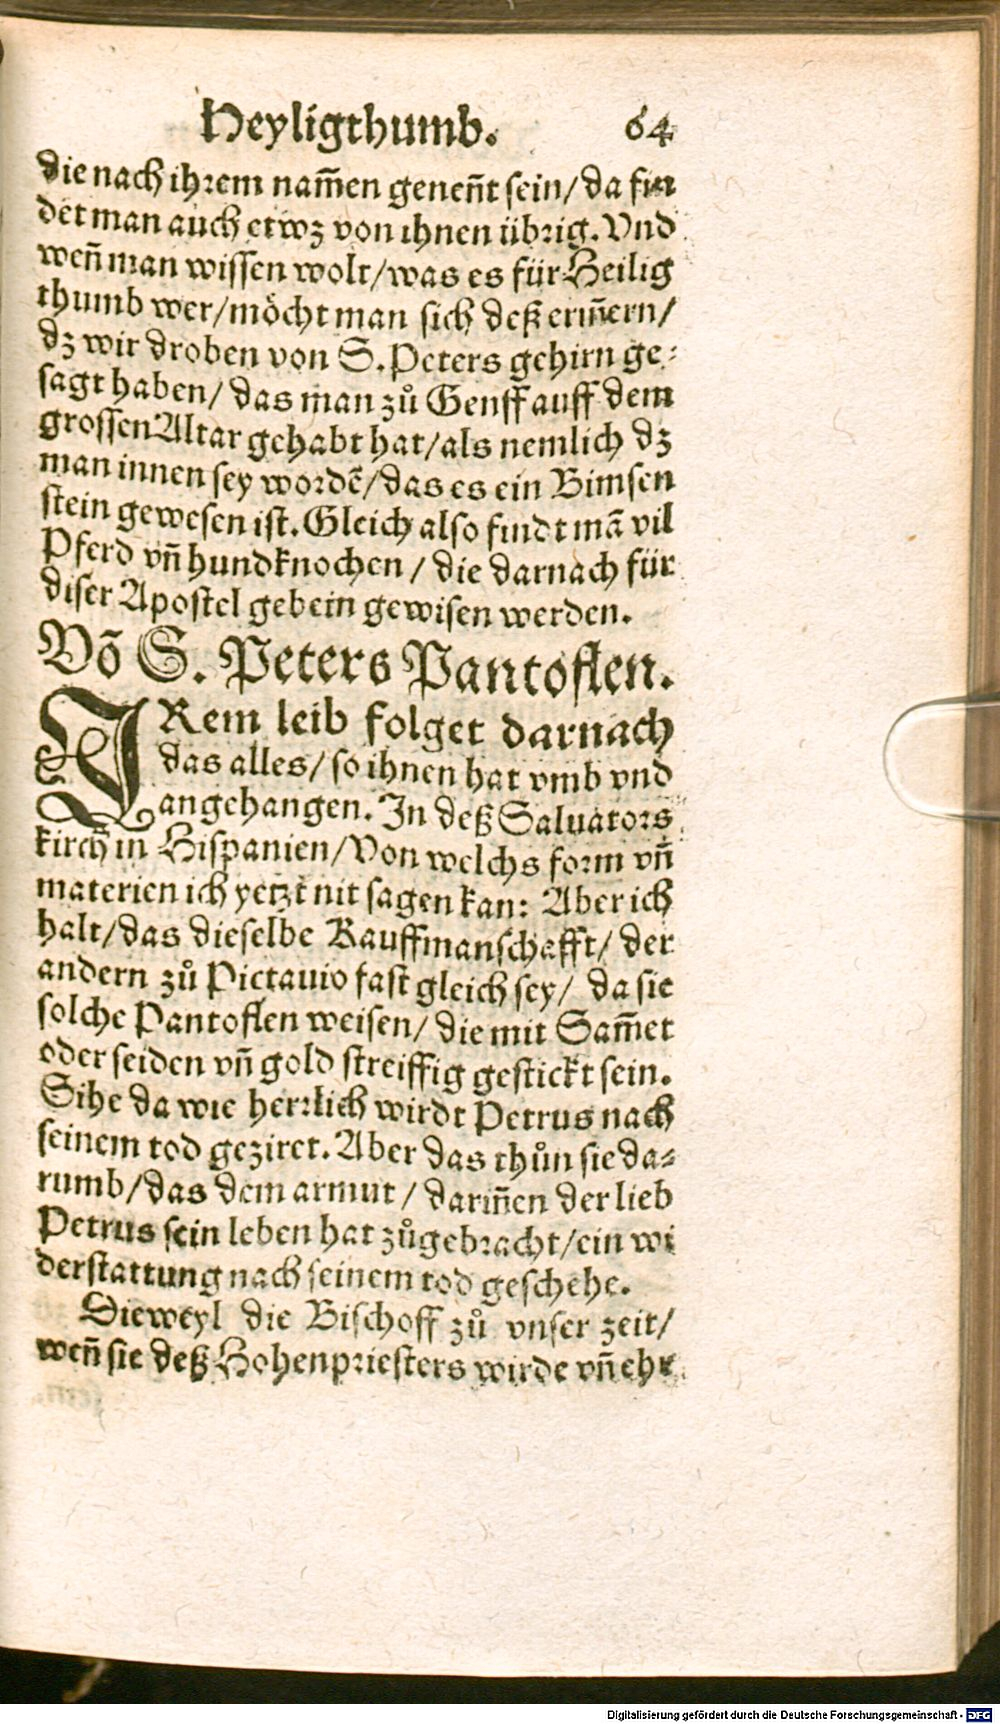 Heyligthumb. 64
die nach ihrem nam̃en geneñt sein/ da fin
det man auch etwz von ihnen übrig. Vnd
weñ man wissen wolt/ was es für Heilig
thumb wer/ möcht man sich deß eriñern/
dz wir droben von S. Peters gehirn ge-
sagt haben/ das man zů Genff auff dem
grossen Altar gehabt hat/ als nemlich dz
man innen sey wordẽ/ das es ein Bimsen
stein gewesen ist. Gleich also findt mã vil
Pferd vñ hundknochen/ die darnach für
diser Apostel gebein gewisen werden.
Võ S. Peters Pantoflen.
IRem leib folget darnach
das alles/ so ihnen hat vmb vnd
angehangen. In deß Saluators
kirch in Hispanien/ Von welchs form vñ
materien ich yetzt nit sagen kan: Aber ich
halt/ das dieselbe Kauffmanschafft/ der
andern zů Pictauio fast gleich sey/ da sie
solche Pantoflen weisen/ die mit Sam̃et
oder seiden vñ gold streiffig gestickt sein.
Sihe da wie herrlich wirdt Petrus nach
seinem tod geziret. Aber das thůn sie da-
rumb/ das dem armut/ dariñen der lieb
Petrus sein leben hat zůgebracht/ ein wi
derstattung nach seinem tod geschehe.
Dieweyl die Bischoff zů vnser zeit/
weñ sie deß Hohenpriesters wirde vñ ehr
Digitalisierung gefördert durch die Deutsche Forschungsgemeinschaft - DFG